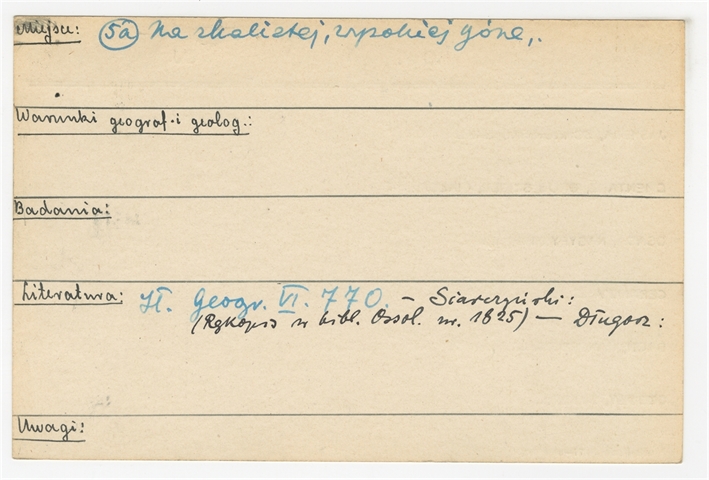 Miejsce: 5a Na skalistej, wysokiej górze,.
Warunki geograf. i geolog.:
Badania:
Literatura: Sł. Geogr. VI. 770. – Siarczyński:
(Rękopis w bibl. Ossol. nr. 1825) — Długosz:
Uwagi: